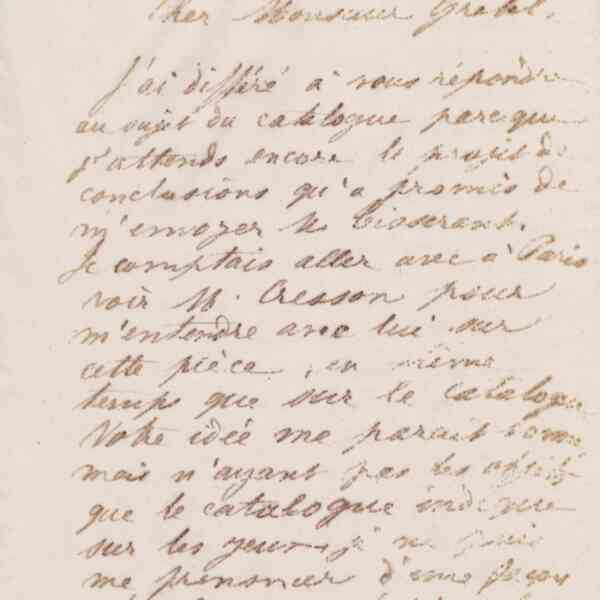 Cher Monsieur Grabet.
J'ai différé à vous répondre
au sujet du catalogue parceque
j'attends encore le projet de
conclusions qu'a promis de
m'envoyer Me Tisserant.
Je comptais aller avec à Paris
voir M. Cresson pour
m'entendre avec lui sur
cette pièce, en même
temps que sur le catalogue
Votre idée me parait bonne
mais n'ayant pas les objets
que le catalogue indique
sur les yeux je ne puis
me prononcer d'une façon